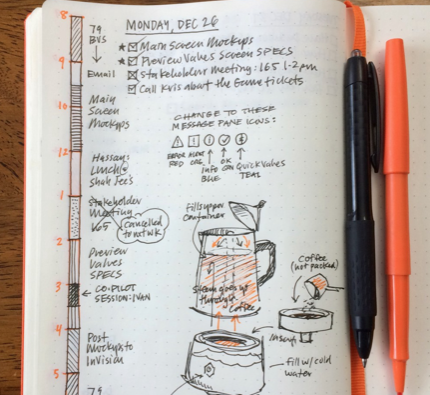 MONDAY, DEC 26
Main Screen Mockups
Preview Values Screen SPECS
Stakeholder Meeting: 165 1-2pm
Call Kris about the Game tickets
79
BVS
8
9
Email
10
Main
Screen
Mockups
12
Hassans
Lunch @
Shah Jee's
1
Stakeholder
Meeting
V65
cancelled
to next wk
2
Preview
Values
SPECS
3
CO-PILOT
SESSION: IVAN
4
Post
Mockups to
InVision
5
79
CHANGE TO THESE
MESSAGE PANE ICONS:
ERROR
RED
ALERT
ORG.
Info
BLUE
OK
GRN
Quick Values
TEAL
Fills upper
Container
Steam goes up
through
Coffee
Coffee
(not packed)
Insert
fill w/cold
water